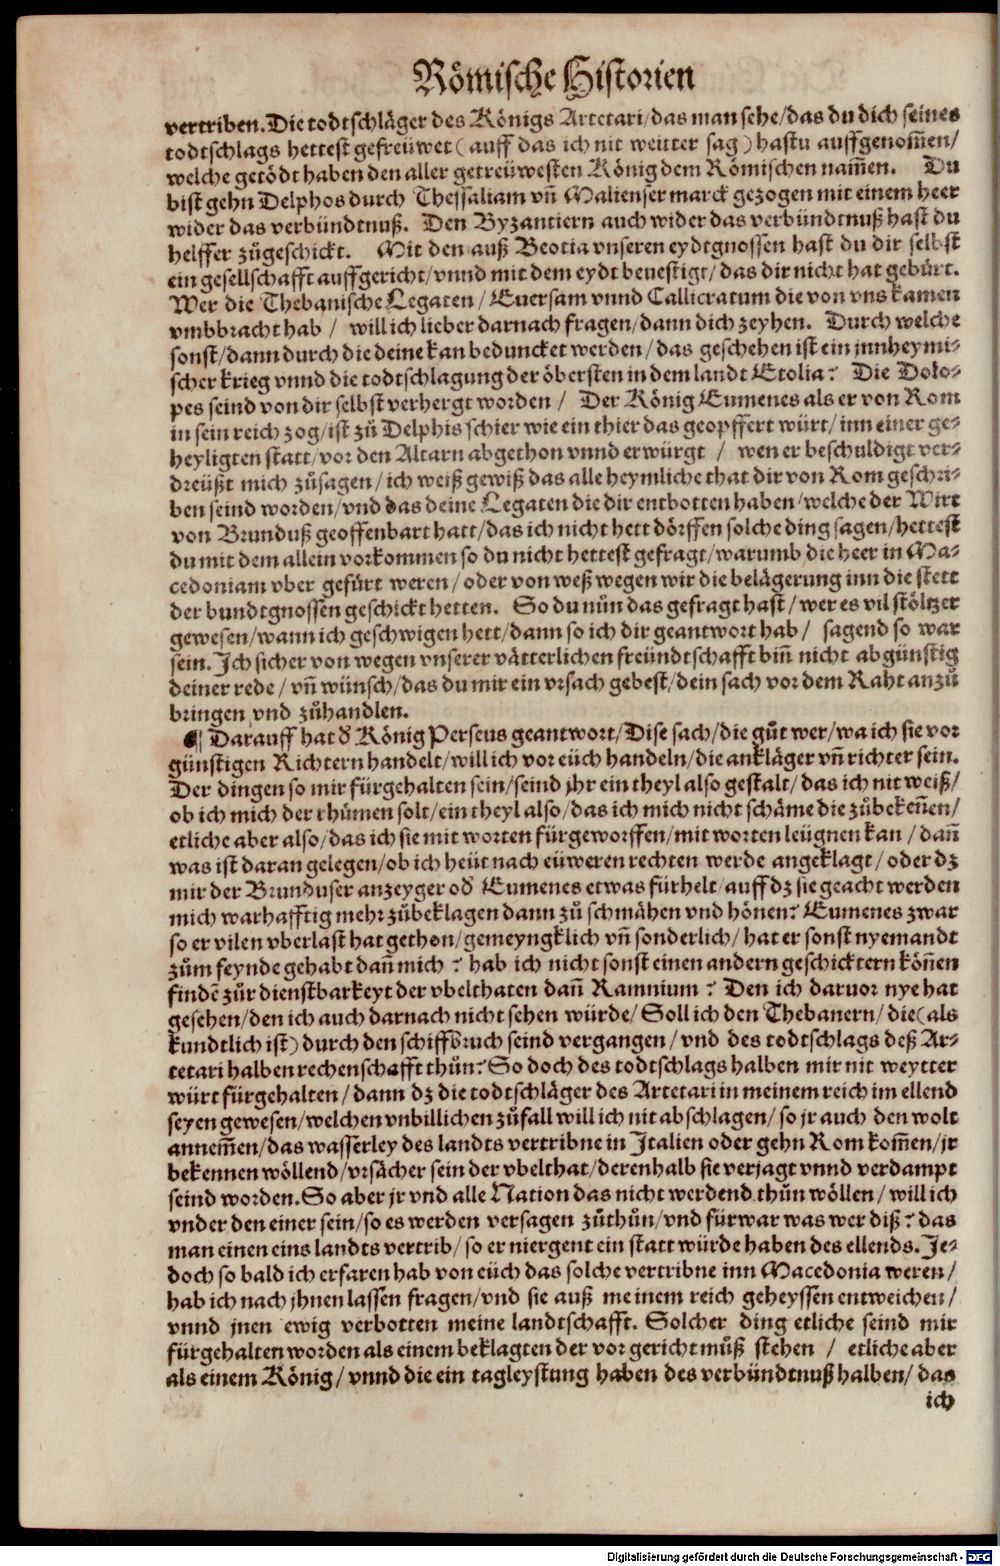 Römische Historien
vertriben. Die todtschläger des Königs Artetari/das man sehe/das du dich seines
todtschlags hettest gefreüwet (auff das ich nit weitter sag) hastu auffgenom̃en/
welche getödt haben den aller getreüwesten König dem Römischen nam̃en. Du
bist gehn Delphos durch Thessaliam vñ Malienser marck gezogen mit einem heer
wider das verbündtnuß. Den Byzantiern auch wider das verbündtnuß hast du
helffer zůgeschickt. Mit den auß Beotia vnseren eydtgnossen hast du dir selbst
ein gesellschafft auffgericht/vnnd mit dem eydt beuestigt/das dir nicht hat gebürt.
Wer die Thebanische Legaten/Euersam vnnd Callicratum die von vns kamen
vmbbracht hab / will ich lieber darnach fragen/dann dich zeyhen. Durch welche
sonst/dann durch die deine kan beduncket werden/das geschehen ist ein jnnheymi⸗
scher krieg vnnd die todtschlagung der öbersten in dem landt Etolia? Die Dolo⸗
pes seind von dir selbst verhergt worden/ Der König Eumenes als er von Rom
in sein reich zog/ist zů Delphis schier wie ein thier das geopffert würt/inn einer ge⸗
heyligten statt/vor den Altarn abgethon vnnd erwürgt / wen er beschuldigt ver⸗
dreüßt mich zůsagen/ich weiß gewiß das alle heymliche that dir von Rom geschri⸗
ben seind worden/vnd das deine Legaten die dir entbotten haben/welche der Wirt
von Brunduß geoffenbart hatt/das ich nicht hett dörffen solche ding sagen/hettest
du mit dem allein vorkommen so du nicht hettest gefragt/warumb die heer in Ma⸗
cedoniam vber gefürt weren/oder von weß wegen wir die belägerung inn die stett
der bundtgnossen geschickt hetten. So du nůn das gefragt hast/wer es vil stöltzer
gewesen/wann ich geschwigen hett/dann so ich dir geantwort hab/ sagend so war
sein. Ich sicher von wegen vnserer vätterlichen freündtschafft biñ nicht abgünstig
deiner rede/vñ wünsch/das du mir ein vrsach gebest/dein sach vor dem Raht anzů
bringen vnd zůhandlen.
¶ Darauff hat d̕ König Perseus geantwort/Dise sach/die gůt wer/wa ich sie vor
günstigen Richtern handelt/will ich vor eüch handeln/die ankläger vñ richter sein.
Der dingen so mir fürgehalten sein/seind jhr ein theyl also gestalt/das ich nit weiß/
ob ich mich der rhůmen solt/ein theyl also/das ich mich nicht schäme die zůbekeñen/
etliche aber also/das ich sie mit worten fürgeworffen/mit worten leügnen kan/dañ
was ist daran gelegen/ob ich heüt nach eüweren rechten werde angeklagt/oder dz
mir der Brunduser anzeyger od̕ Eumenes etwas fürhelt/auff dz sie geacht werden
mich warhafftig mehr zůbeklagen dann zů schmähen vnd hönen? Eumenes zwar
so er vilen vberlast hat gethon/gemeyngklich vñ sonderlich/hat er sonst nyemandt
zům feynde gehabt dañ mich? hab ich nicht sonst einen andern geschicktern köñen
findẽ zůr dienstbarkeyt der vbelthaten dañ Ramnium? Den ich daruor nye hat
gesehen/den ich auch darnach nicht sehen würde/Soll ich den Thebanern/die (als
kundtlich ist) durch den schiffbruch seind vergangen/vnd des todtschlags deß Ar⸗
tetari halben rechenschafft thůn? So doch des todtschlags halben mir nit weytter
würt fürgehalten/dann dz die todtschläger des Artetari in meinem reich im ellend
seyen gewesen/welchen vnbillichen zůfall will ich nit abschlagen/so jr auch den wolt
annem̃en/das wasserley des landts vertribne in Italien oder gehn Rom kom̃en/jr
bekennen wöllend/vrsächer sein der vbelthat/derenhalb sie verjagt vnnd verdampt
seind worden. So aber jr vnd alle Nation das nicht werdend thůn wöllen/will ich
vnder den einer sein/so es werden versagen zůthůn/vnd fürwar was wer diß? das
man einen eins landts vertrib/so er niergent ein statt würde haben des ellends. Je⸗
doch so bald ich erfaren hab von eüch das solche vertribne inn Macedonia weren/
hab ich nach jhnen lassen fragen/vnd sie auß meinem reich geheyssen entweichen/
vnnd jnen ewig verbotten meine landtschafft. Solcher ding etliche seind mir
fürgehalten worden als einem beklagten der vor gericht můß stehen / etliche aber
als einem König/vnnd die ein tagleystung haben des verbündtnuß halben/das
ich
Digitalisierung gefördert durch die Deutsche Forschungsgemeinschaft - DFG